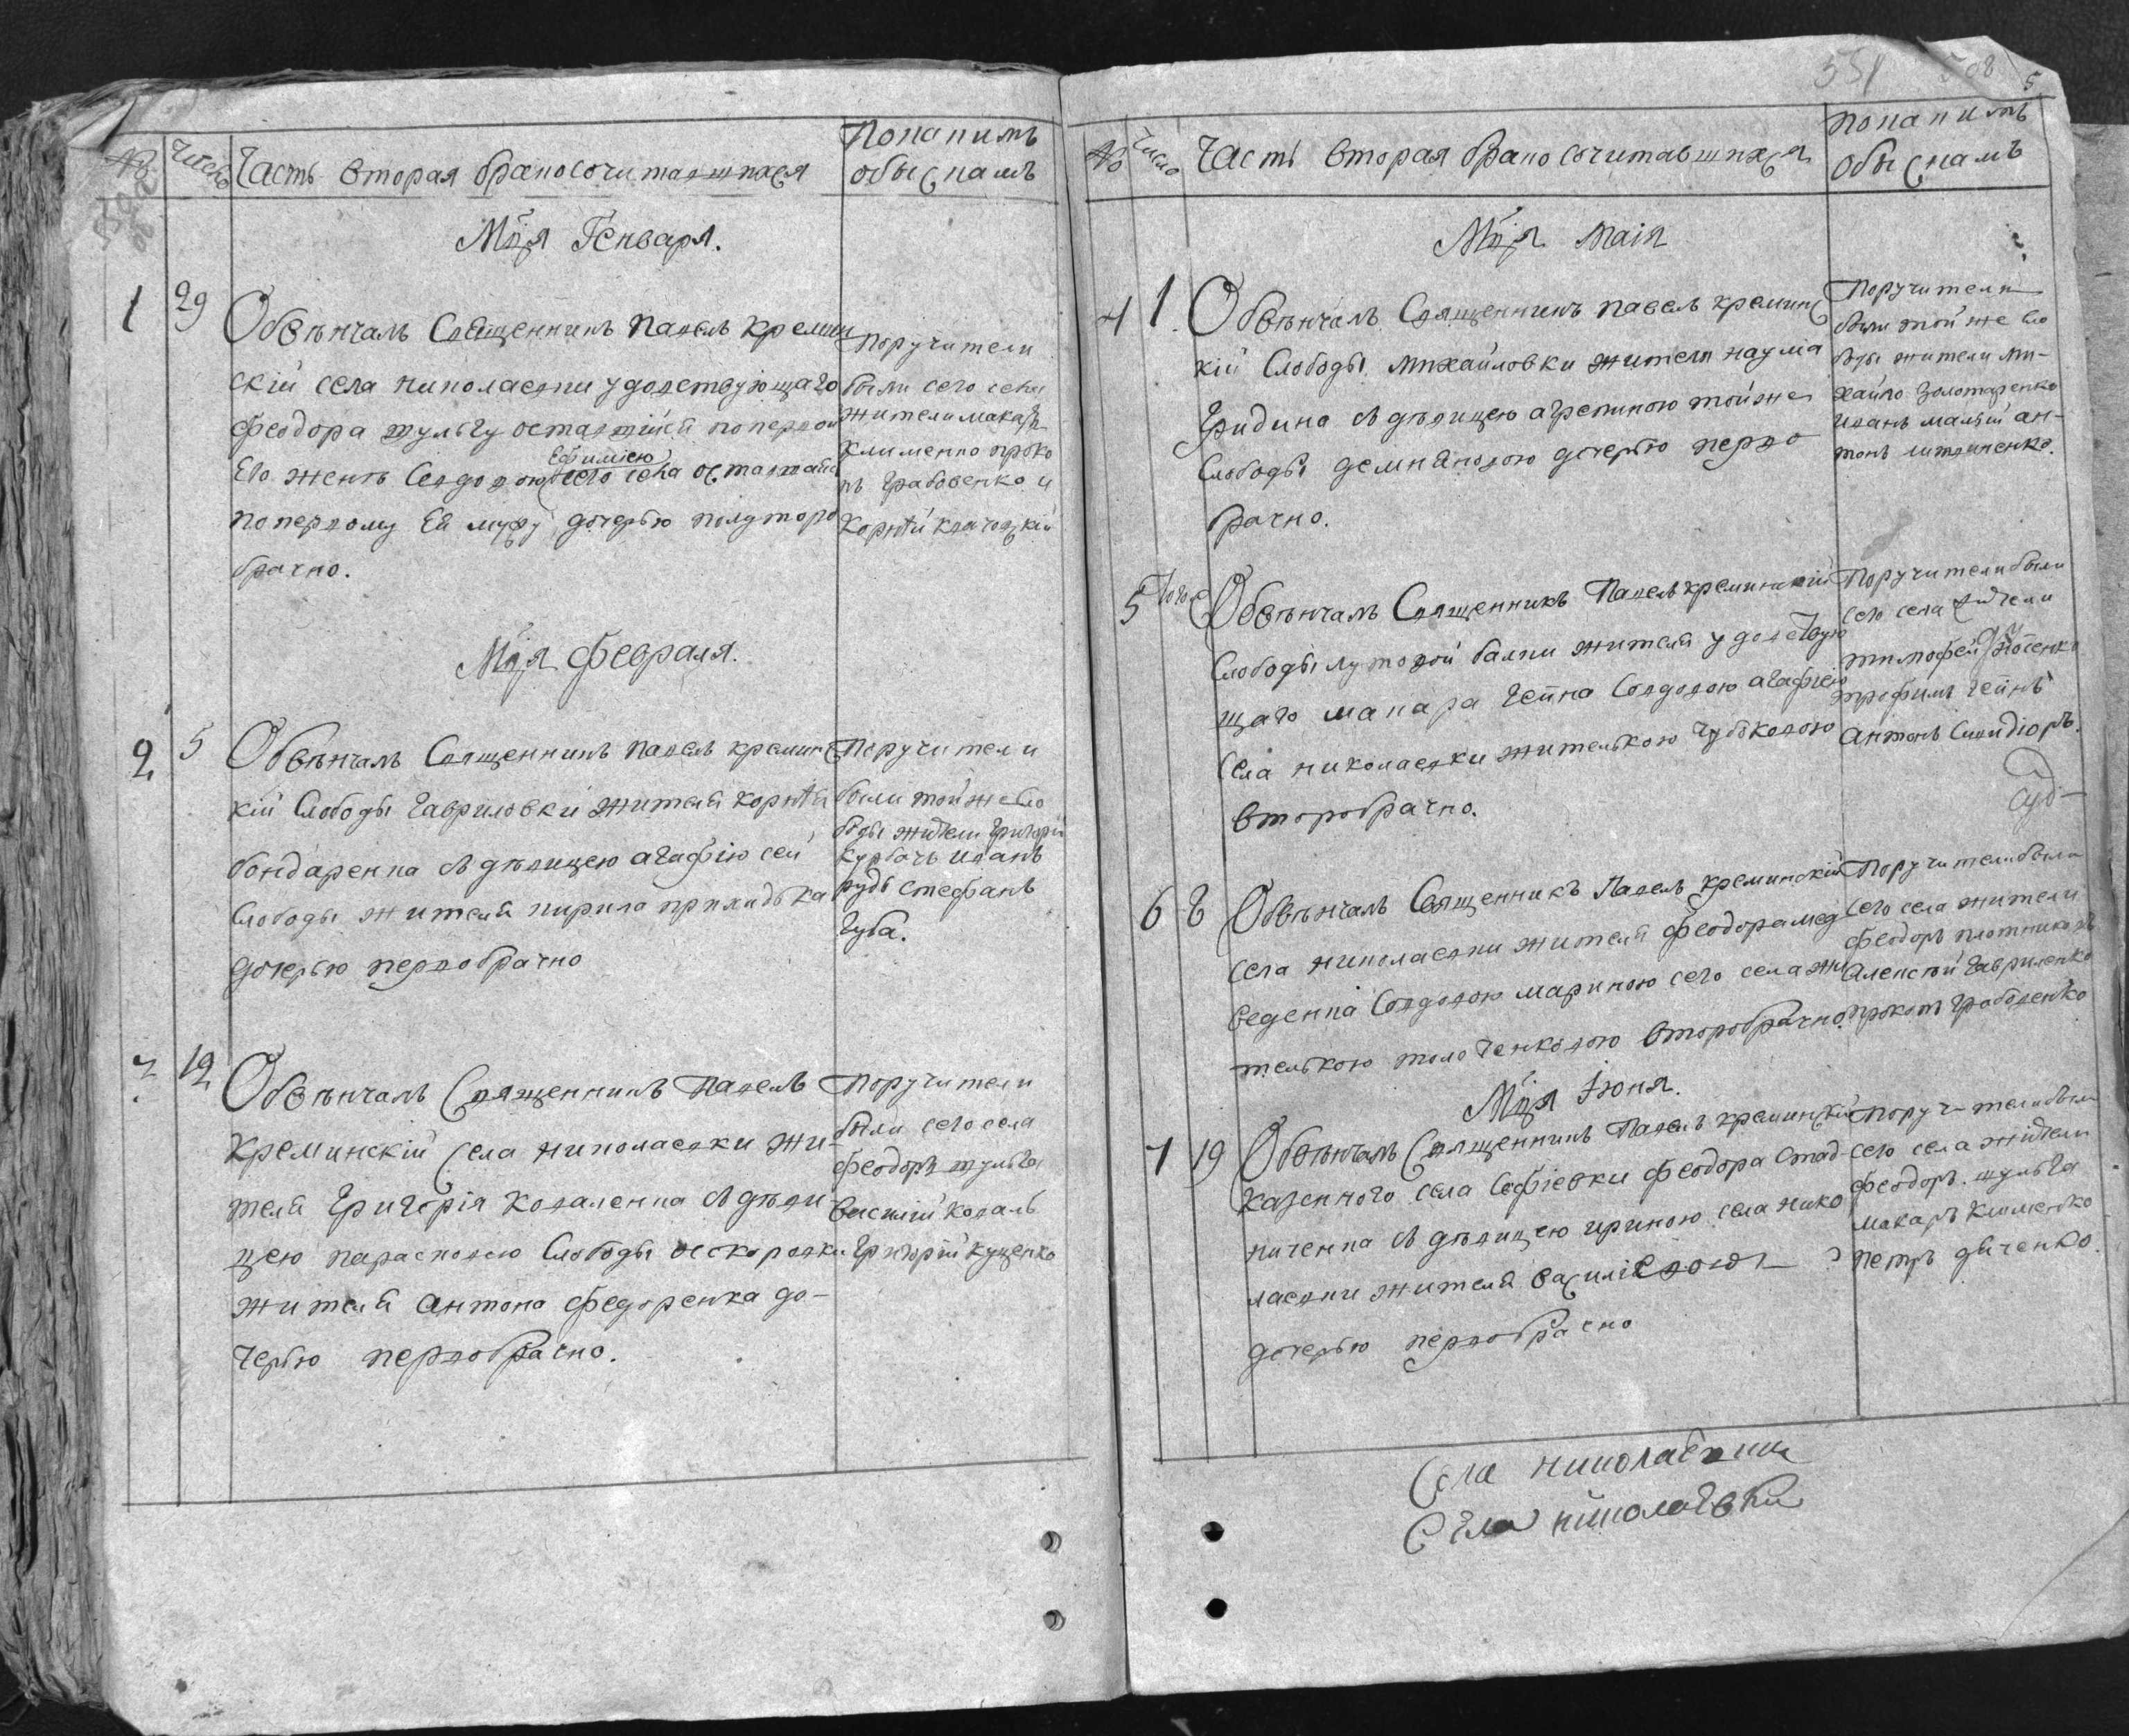 № Число Часть вторая бракосочитавшихся По какимъ обыскамъ
Мцⷭ҇а Генваря.
1 29 Обвѣнчалъ Священникъ Павелъ Кремин
скій села николаевки удовствующаго
феодора шульгу оставшійся по первой
Его женѣ Совдовою Ефиміею сего села оставшайс
по первому Ея мужу дочерью полуторо
брачно.
Поручители
были сего села
жители макаръ
Клименко проко
пъ Грабовенко и
Корнѣй
Мцⷭ҇а февраля.
2 5 Обвѣнчалъ Священникъ павелъ кремин
кій Слободы Гавриловки жителя корнѣя
бондаренка съ дѣвицею агафію сей
Слободы жителя кирила приходька
дочерью первобрачно
Поручители
были той же сло
боды жители григорій
Курбачъ иванъ
рудь стефанъ
Губа.
3 12 Обвѣнчалъ Священникъ Павелъ
Креминскій села николаевки жи-
теля Григорія Коваленка съ дѣви
цею парасковею Слободы оскоровки
жителя антона федоренка до-
черью первобрачно.
Поручители
были сего села
феодоръ шульга
Василій коваль
Григорій куценко
551 508 5
№ Число Часть вторая бракосочитавшихся По какимъ обыскамъ
Мцⷭ҇а маія
4 1. Обвѣнчалъ Священникъ павелъ кремин
кій Слободы михайловки жителя наума
Гридина съ дѣвицею агрепиною тойже
Слободы демяновою дочерью перво
брачно.
Поручители
были той же сло
боды жители ми-
хайло золотаренко
иванъ малый ан-
тонъ
5 того Обвѣнчалъ Священникъ Павелъ креминскій
Слободы лутовой балки жителя удовствую
щаго макара Гейка Совдовою агафіею
Села николаевки жителькою чубковою
второбрачно.
Поручители были
сего села жители
тимофей
трофимъ Гейнъ
антонъ
6 8 Обвѣнчалъ Священникъ Павелъ креминскій
села николаевки жителя феодора мед
веденка Совдовою мариною сего села жи
телькою второбрачно.
Поручители были
сего села жители
феодоръ плотниковъ
Алексѣй Гавриленко
прокопъ Грабовенко
Мцⷭ҇а Іюня.
7 19 Обвѣнчалъ Священникъ Павелъ креминскій
казенного села Софіевки феодора Стад-
ниченка съ дѣвицею ириною села нико
лаевки жителя василіевою
дочерью первобрачно
Поручители были
сего села жители
феодоръ шульга
макаръ клименко
петръ дяченко.
Села николаевки
Села николаевки